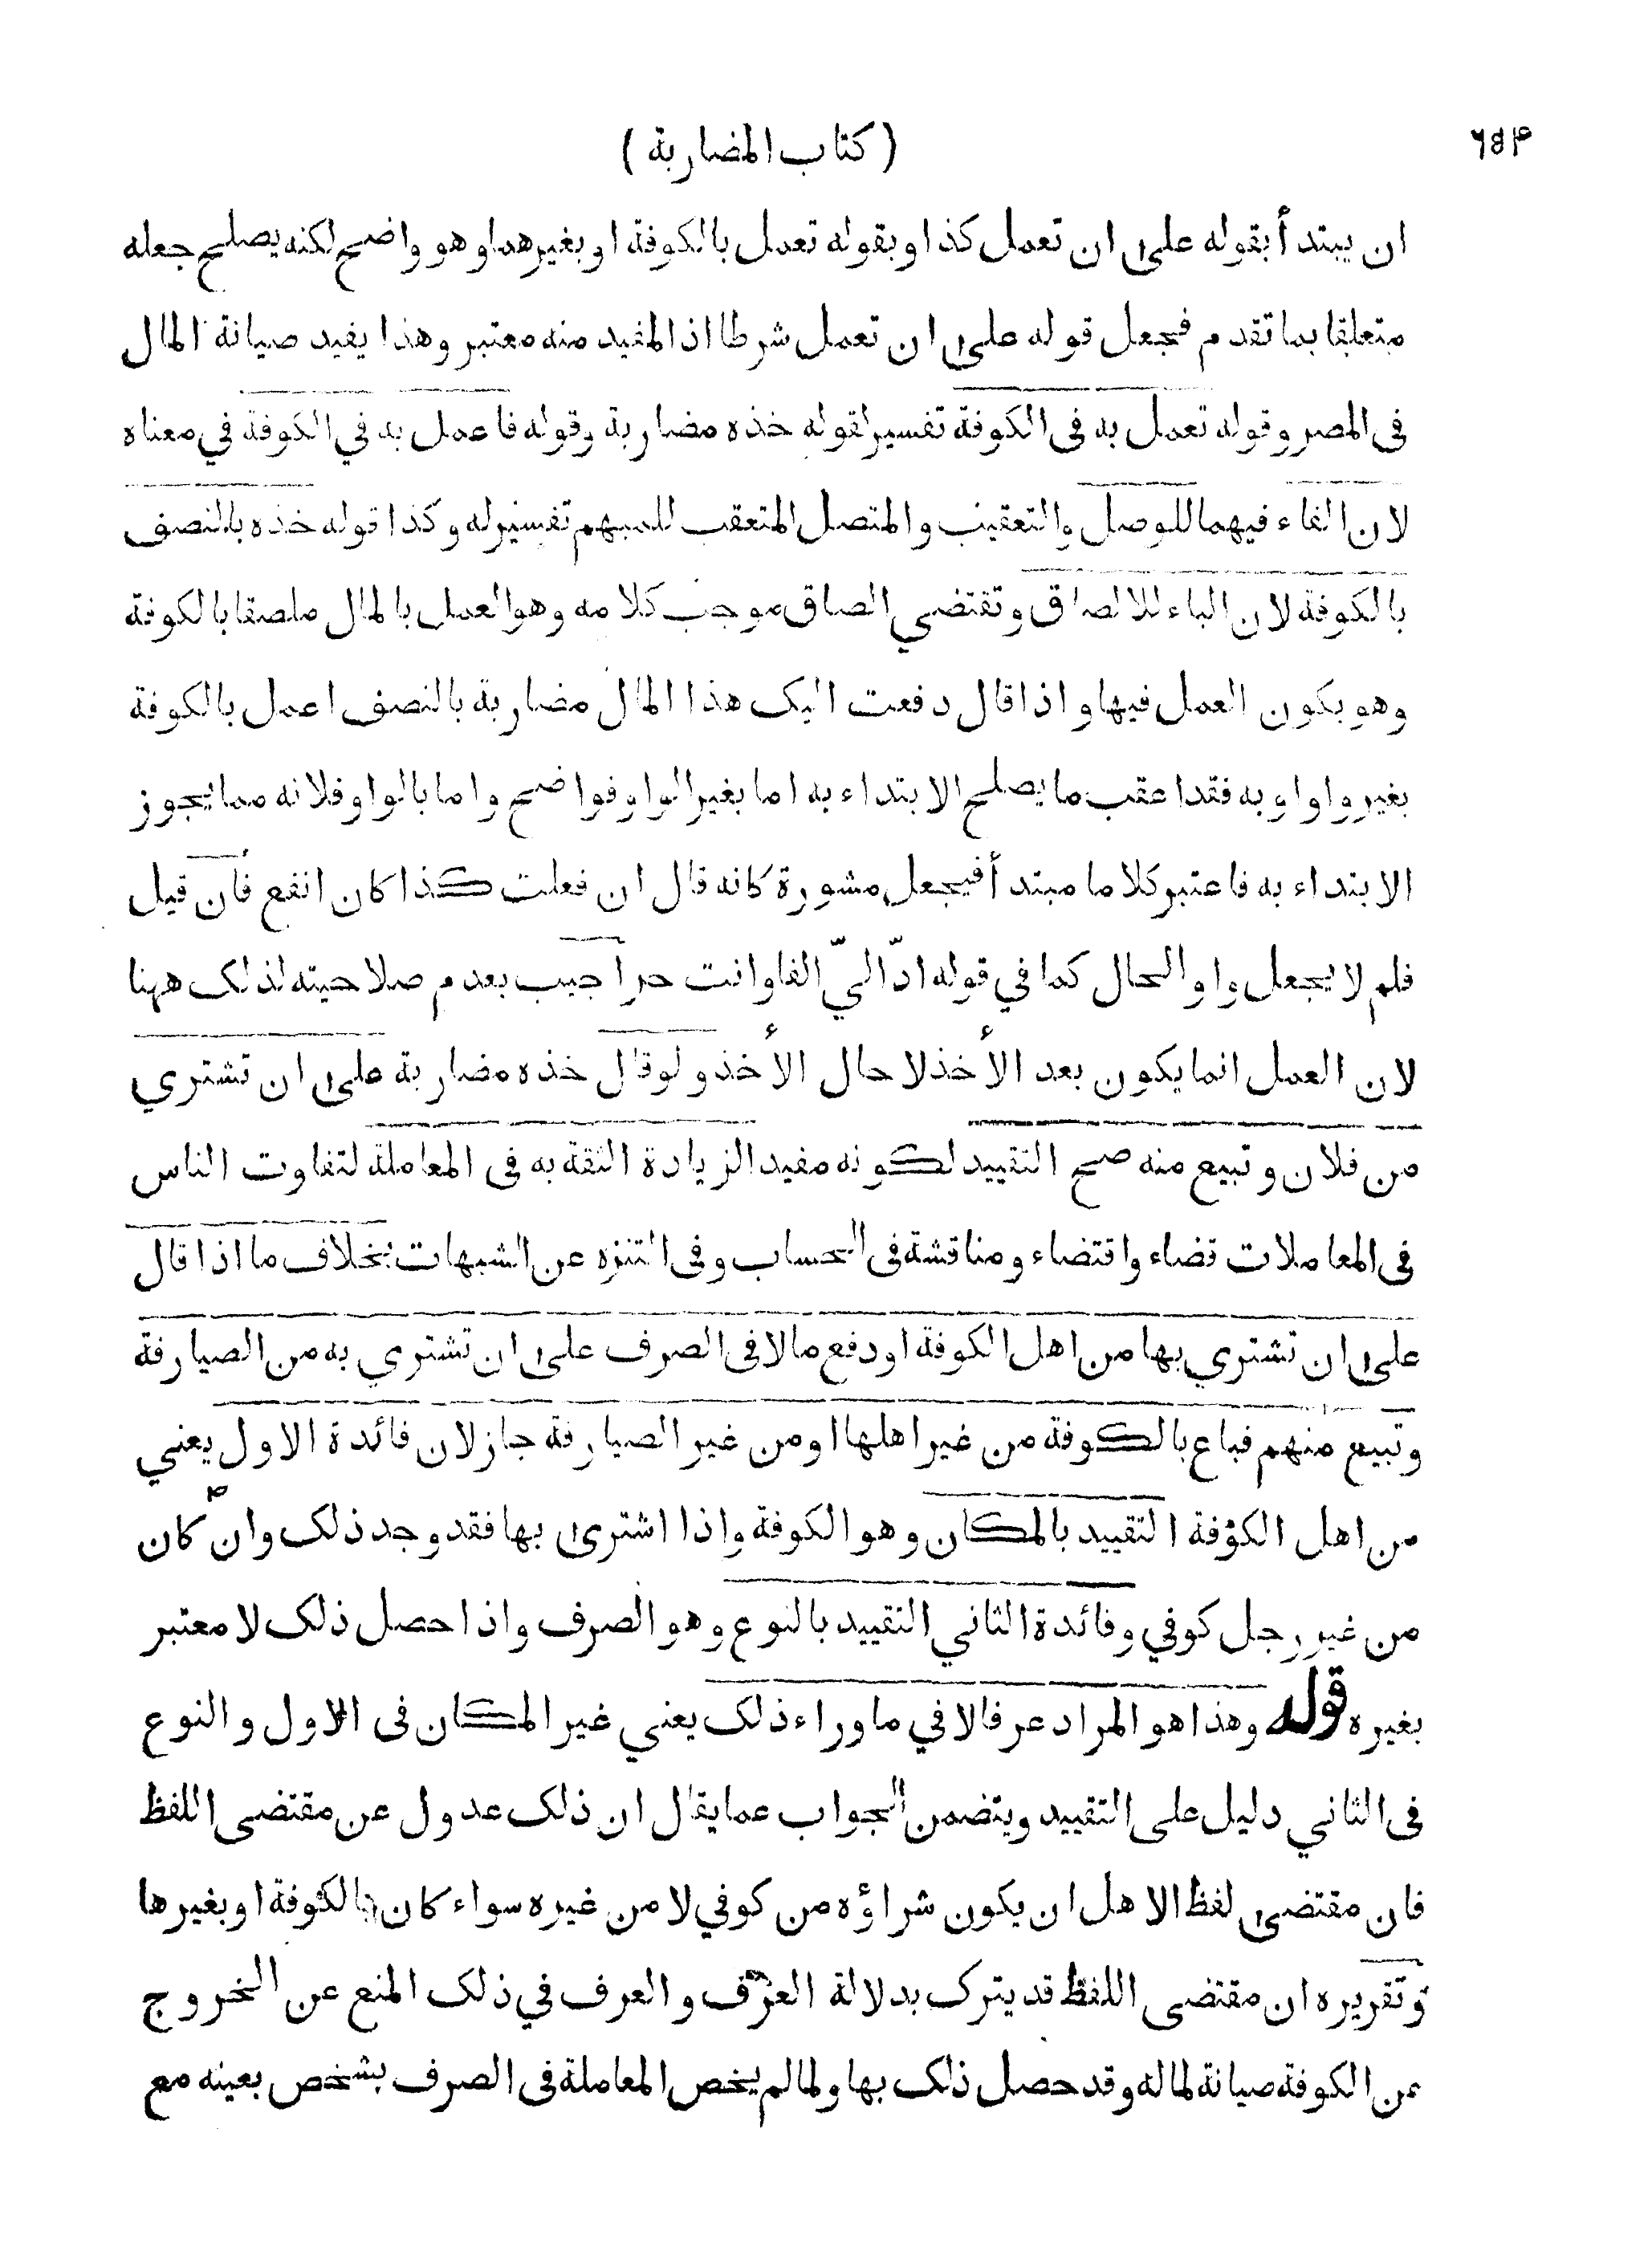 ( كتاب المضاربة )
ان يبتدأ بقوله على ان تعمل كذا وبقوله تعمل بالكوفة او بغيرهما وهو واضح لكنه يصلح جعله
متعلقا بما تقدم فجعل قوله على ان تعمل شرطا اذ المفيد منه معتبر وهذا يفيد صيانة المال
فى المصر وقوله تعمل به فى الكوفة تفسير لقوله خذه مضاربة وقوله فاعمل به في الكوفة في معناه
لان الفاء فيهما للوصل والتعقيب والمتصل المتعقب للمبهم تفسير له وكذا قوله خذه بالنصف
بالكوفة لان الباء للالصاق وتقتضي الصاق موجب كلامه وهو العمل بالمال ملصقا بالكوفة
وهو بكون العمل فيها واذا قال دفعت اليك هذا المال مضاربة بالنصف اعمل بالكوفة
بغير واو او به فقد اعقب ما يصلح الابتداء به اما بغير الواو فواضح واما بالواو فلانه مما يجوز
الابتداء به فاعتبر كلاما مبتدأ فيجعل مشورة كانه قال ان فعلت كذا كان انفع فان قيل
فلم لا يجعل واو الحال كما في قوله ادّ اليّ الفا وانت حر اجيب بعدم صلاحيته لذلك ههنا
لان العمل انما يكون بعد الأخذ لا حال الأخذ ولو قال خذه مضاربة على ان تشتري
من فلان وتبيع منه صح التقييد لكونه مفيد الزيادة الثقه به فى المعاملة لتفاوت الناس
فى المعاملات قضاء واقتضاء ومناقشة فى الحساب وفى التنزه عن الشبهات بخلاف ما اذا قال
على ان تشتري بها من اهل الكوفة او دفع مالا فى الصرف على ان تشتري به من الصيارفة
وتبيع منهم فباع بالكوفة من غير اهلها او من غير الصيارفة جاز لان فائدة الاول يعني
من اهل الكوفة التقييد بالمكان وهو الكوفة واذا اشترى بها فقد وجد ذلك وان كان
من غير رجل كوفي وفائدة الثاني التقييد بالنوع وهو الصرف واذا حصل ذلك لا معتبر
بغيره قوله وهذا هو المراد عرفا لا في ما وراء ذلك يعني غير المكان فى الاول والنوع
فى الثاني دليل على التقييد ويتضمن الجواب عما يقال ان ذلك عدول عن مقتضى اللفظ
فان مقتضى لفظ الاهل ان يكون شراؤه من كوفي لا من غيره سواء كان بالكوفة او بغيرها
وتقريره ان مقتضى اللفظ قد يترك بدلالة العرف والعرف في ذلك المنع عن الخروج
عن الكوفة صيانة لماله وقد حصل ذلك بها ولما لم يخص المعاملة فى الصرف بشخص بعينه مع